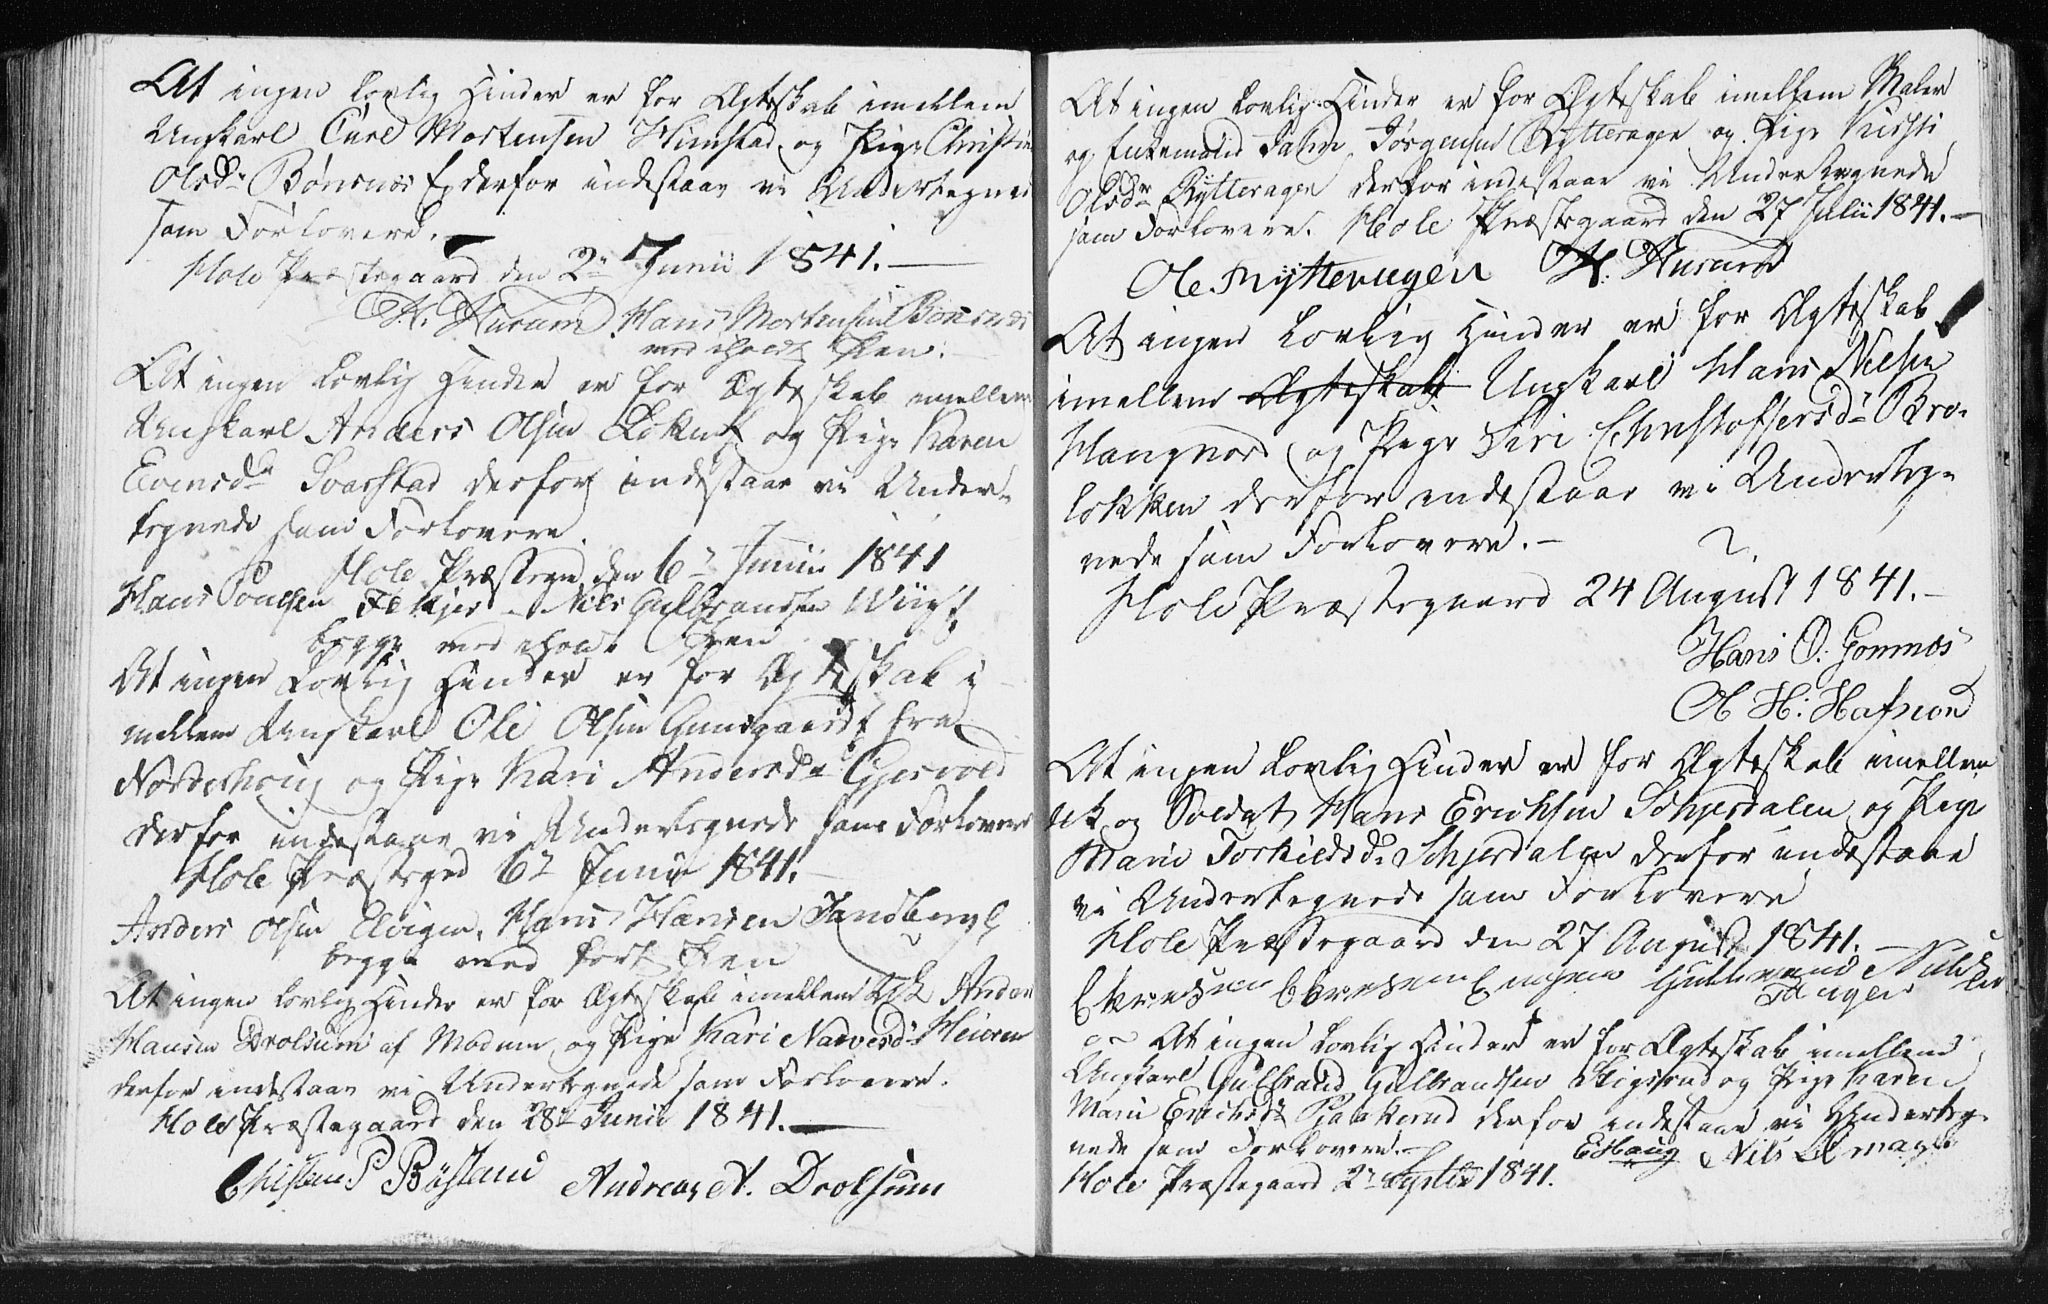 At ingen lovlig Hinder er for Ægteskab imellem
Ungkarl Carl Mortensen Himstad og Pige Christi
Olsdr Bønsnæs E derfor indestaar vi Undertegnede
som Forlovere.
Hole Præstegaard den 2n Junii 1841.
H. Husum Hans Mortensen Bønsnæs
med iholdt Pen.
At ingen lovlig Hinder er for Ægteskab imellem
Ungkarl Anders Olsen og Pige Karen
Evensdr Svarstad derfor indestaar vi Under-
tegnede som Forlovere.
Hole Præstegd den 6n Junii 1841
Hans Fekjer - Nils Gulbrandsen Wiig
begge med iholdt Pen
At ingen Lovlig Hinder er for Ægteskab i
mellem Ungkarl Ole Olsen fra
Norderhoug og Pige Kari Andersdr Gjesvold
derfor indestaar vi Undertegnede som Forlovere
Hole Præstegd 6n Junii 1841.
Anders Olsen Elvigen, Hans Hansen Sandberg
begge med ført Pen
At ingen lovlig Hinder er for Ægteskab imellem Uk Anders
Hansen Drolsum af Modum og Pige Kari Narvesdr
derfor indestaar vi Undertegnede som Forlovere.
Hole Præstegaard den 28n Junii 1841.
Christen P Andreas A. Drolsum
At ingen lovlig Hinder er for Ægteskab imellem Maler
og Enkemand Jørgensen Rytteragen og Pige Kirsti
Olsdr Rytteragen derfor indestaar vi Undertegnede
som Forlovere. Hole Præstegaard den 27 Julii 1841.
Ole Rytteragen H. Husum
At ingen lovlig Hinder er for Ægteskab
imellem Ægteskab Ungkarl Hans Nielsen
og Pige Siri Christoffersdr Bro-
løkken derfor indestaar vi Underteg-
nede som Forlovere.
Hole Præstegaard 24 August 1841.
Hans O. Gomnæs
O H:
At ingen lovlig Hinder er for Ægteskab imellem
Uk og Soldat Hans Erichsen Schjerdalen og Pige
Marie Torkildsdr Schjerdalen derfor indestaar
vi Undertegnede som Forlovere
Hole Præstegaard den 27 August 1841.
Gulbrand
At ingen lovlig Hinder er for Ægteskab imellem
Ungkarl Gulbrand Gulbrandsen og Pige Karen
Marie Erichsdr derfor indestaar vi Underteg-
nede som Forlovere. EHaug Nils
Hole Præstegaard 2n Septbr 1841.